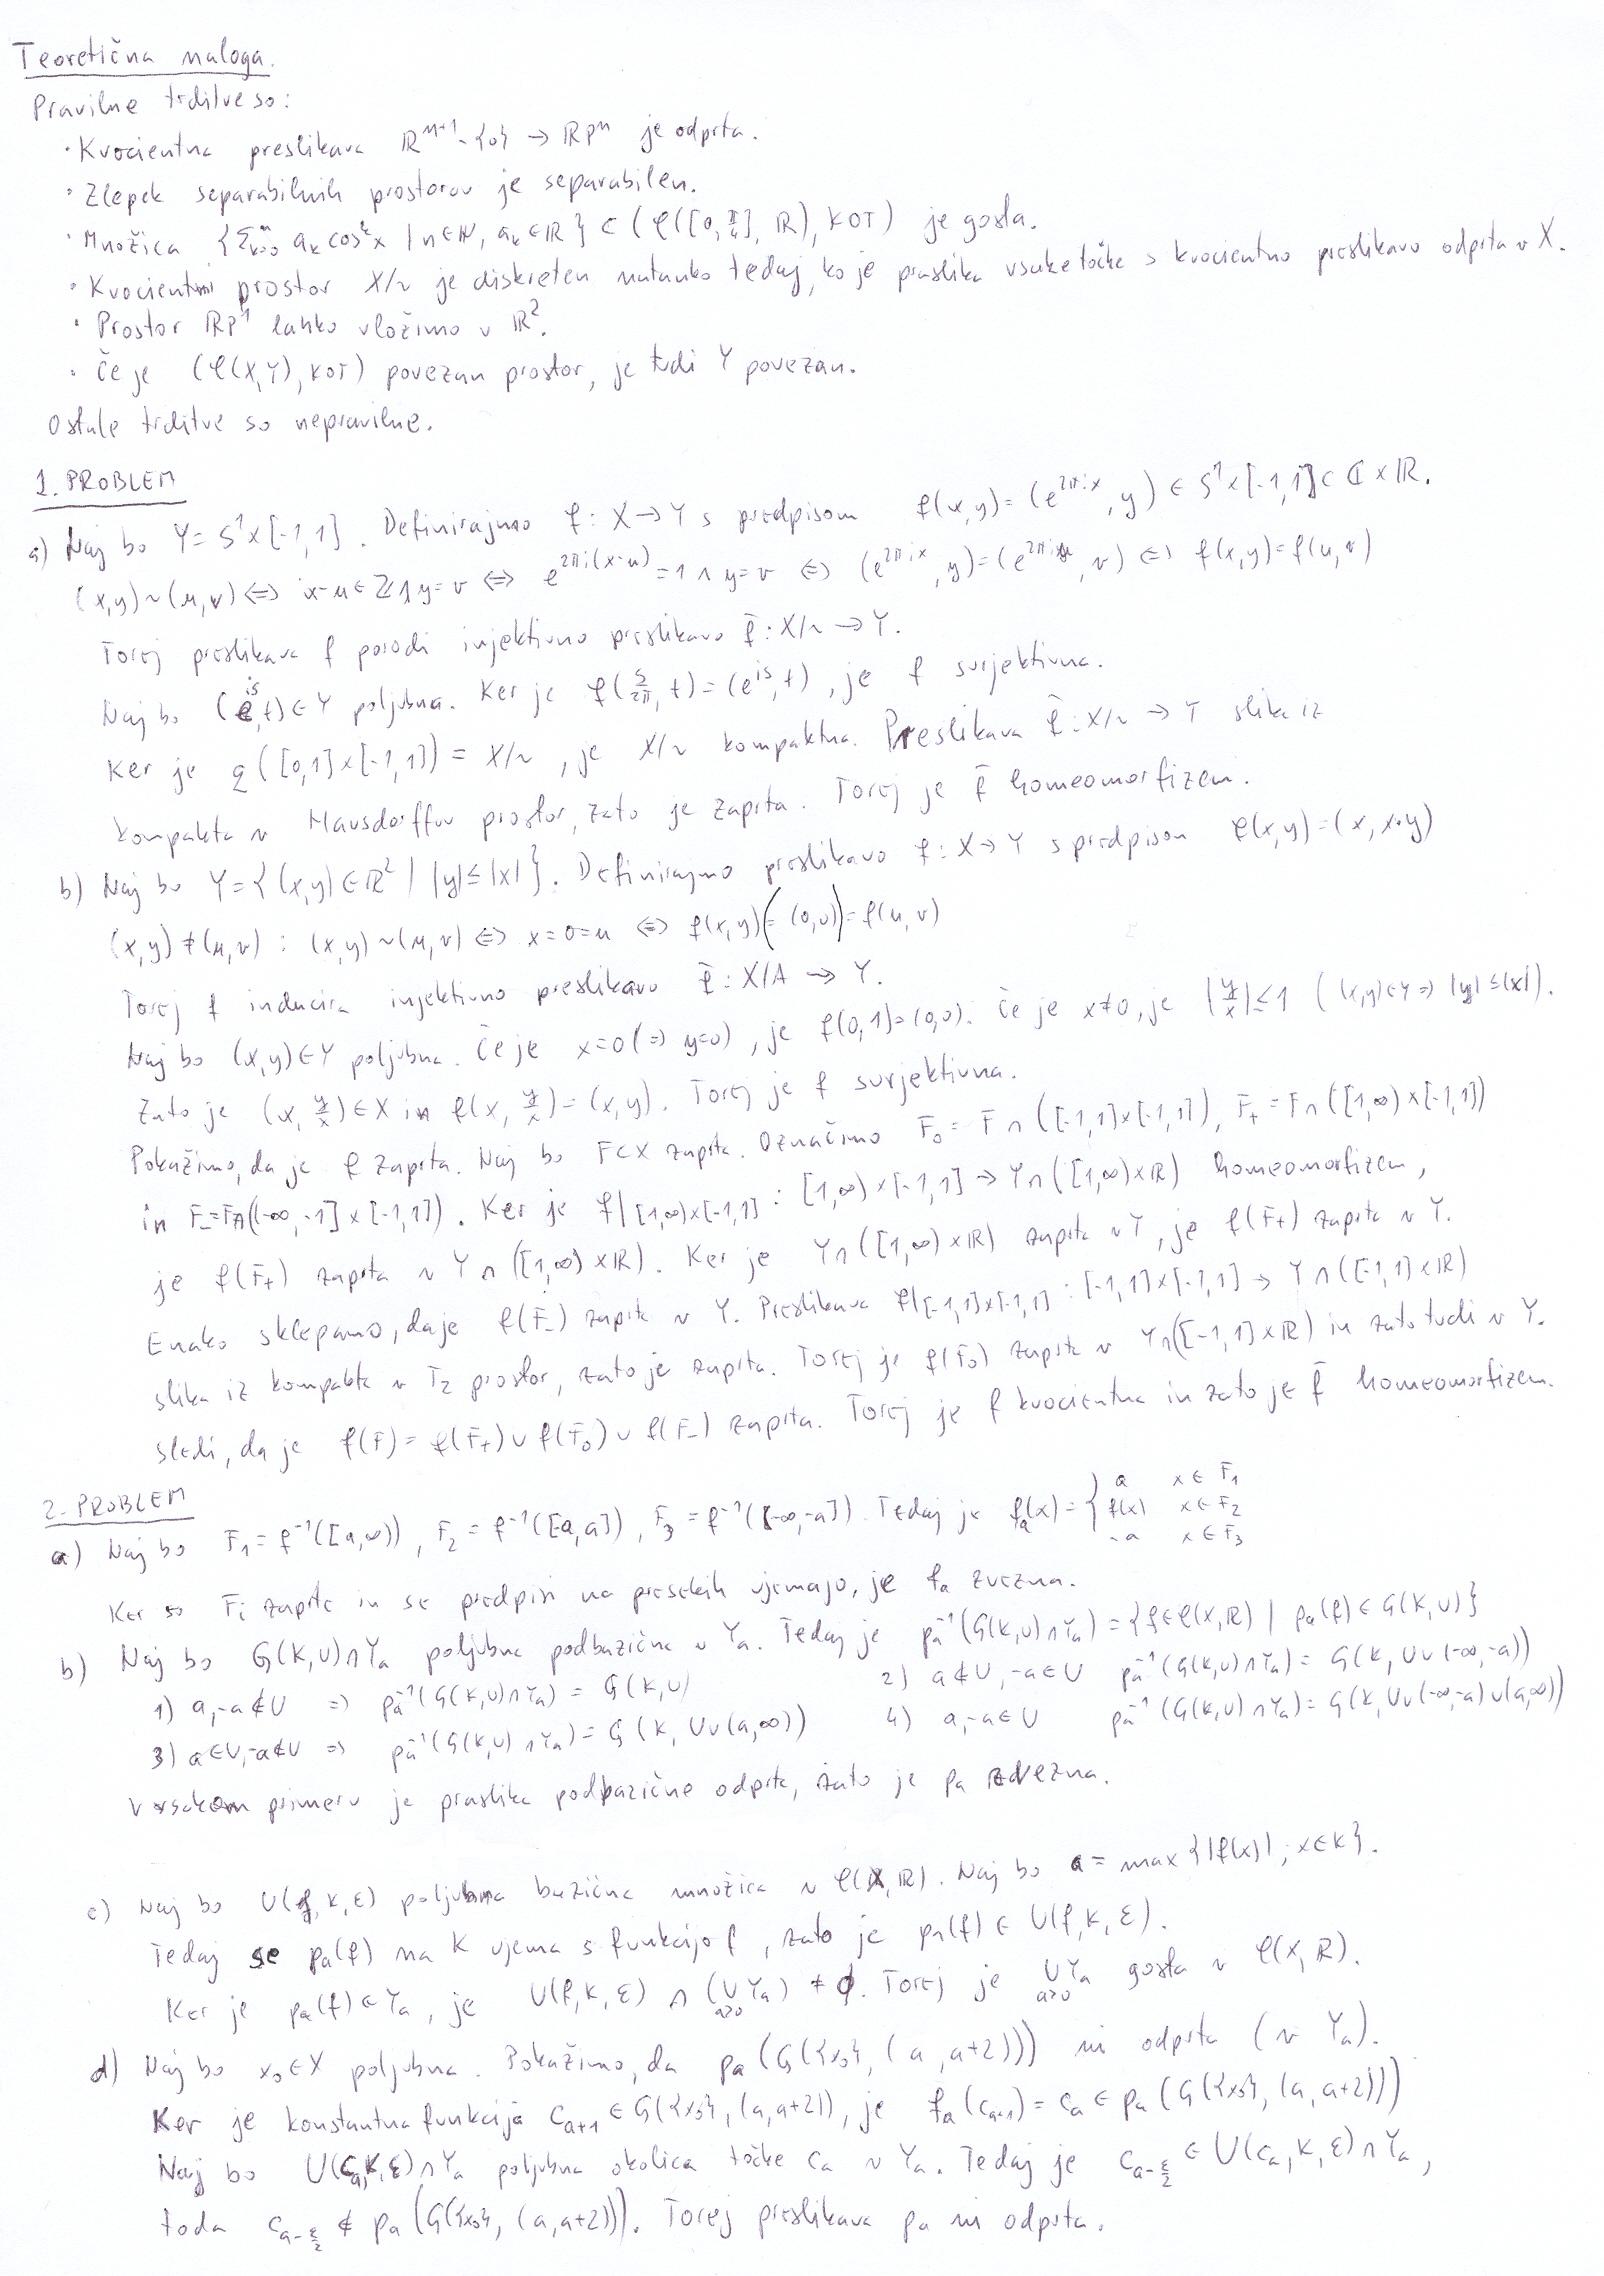 Teoretična naloga.
Pravilne trditve so:
· Kvocientna preslikava ℝⁿ⁺¹-{0} → ℝPⁿ je odprta.
· Zlepek separabilnih prostorov je separabilen.
· Množica {Σₖ₌₀ⁿ aₖ cosᵏx | n∈ℕ, aₖ∈ℝ} ⊂ (𝒞([0,π/4], ℝ), KOT) je gosta.
· Kvocientni prostor X/~ je diskreten natanko tedaj, ko je praslika vsake točke s kvocientno preslikavo odprta v X.
· Prostor ℝP¹ lahko vložimo v ℝ².
· Če je (𝒞(X,Y), KOT) povezan prostor, je tudi Y povezan.
Ostale trditve so nepravilne.
1. PROBLEM
a) Naj bo Y = S¹×[-1,1]. Definirajmo f: X→Y s predpisom f(x,y) = (e^{2πix}, y) ∈ S¹×[-1,1] ⊂ ℂ×ℝ.
(x,y)~(u,v) ⇔ x-u∈ℤ ∧ y=v ⇔ e^{2πi(x-u)}=1 ∧ y=v ⇔ (e^{2πix}, y)=(e^{2πiu}, v) ⇔ f(x,y)=f(u,v)
Torej preslikava f porodi injektivno preslikavo f̄: X/~ → Y.
Naj bo (e^{is},t)∈Y poljubna. Ker je f(s/2π, t)=(e^{is}, t), je f surjektivna.
Ker je q([0,1]×[-1,1]) = X/~, je X/~ kompaktna. Preslikava f̄: X/~ → Y slika iz
kompakta v Hausdorffov prostor, zato je zaprta. Torej je f̄ homeomorfizem.
b) Naj bo Y={(x,y)∈ℝ² | |y|≤|x|}. Definirajmo preslikavo f: X→Y s predpisom f(x,y)=(x, x·y)
(x,y)≠(u,v): (x,y)~(u,v) ⇔ x=0=u ⇔ f(x,y)(=(0,0))=f(u,v)
Torej f inducira injektivno preslikavo f̄: X/A → Y.
Naj bo (x,y)∈Y poljubna. Če je x=0 (⇒ y=0), je f(0,1)=(0,0). Če je x≠0, je |y/x|≤1 ((x,y)∈Y ⇒ |y|≤|x|).
Zato je (x, y/x)∈X in f(x, y/x)=(x,y). Torej je f surjektivna.
Pokažimo, da je f zaprta. Naj bo F⊂X zaprta. Označimo F₀ = F∩([-1,1]×[-1,1]), F₊ = F∩([1,∞)×[-1,1])
in F₋=F∩((-∞,-1]×[-1,1]). Ker je f|[1,∞)×[-1,1] : [1,∞)×[-1,1] → Y∩([1,∞)×ℝ) homeomorfizem,
je f(F₊) zaprta v Y∩([1,∞)×ℝ). Ker je Y∩([1,∞)×ℝ) zaprta v Y, je f(F₊) zaprta v Y.
Enako sklepamo, da je f(F₋) zaprta v Y. Preslikava f|[-1,1]×[-1,1] : [-1,1]×[-1,1] → Y∩([-1,1]×ℝ)
slika iz kompakta v T₂ prostor, zato je zaprta. Torej je f(F₀) zaprta v Y∩([-1,1]×ℝ) in zato tudi v Y.
Sledi, da je f(F) = f(F₊)∪f(F₀)∪f(F₋) zaprta. Torej je f kvocientna in zato je f̄ homeomorfizem.
2. PROBLEM
a) Naj bo F₁ = f⁻¹([a,∞)), F₂ = f⁻¹([-a,a]), F₃ = f⁻¹((-∞,-a]). Tedaj je fₐ(x) = { a x∈F₁
f(x) x∈F₂
-a x∈F₃
Ker so Fᵢ zaprte in se predpisi na presekih ujemajo, je fₐ zvezna.
b) Naj bo G(K,U)∩Yₐ poljubna podbazična v Yₐ. Tedaj je pₐ⁻¹(G(K,U)∩Yₐ) = {f∈𝒞(X,ℝ) | pₐ(f)∈G(K,U)}
1) a,-a∉U ⇒ pₐ⁻¹(G(K,U)∩Yₐ) = G(K,U) 2) a∉U, -a∈U pₐ⁻¹(G(K,U)∩Yₐ) = G(K, U∪(-∞,-a))
3) a∈U, -a∉U ⇒ pₐ⁻¹(G(K,U)∩Yₐ) = G(K, U∪(a,∞)) 4) a,-a∈U pₐ⁻¹(G(K,U)∩Yₐ) = G(K, U∪(-∞,-a)∪(a,∞))
V vsakem primeru je praslika podbazične odprta, zato je pₐ zvezna.
c) Naj bo U(f,K,ε) poljubna bazična množica v 𝒞(X,ℝ). Naj bo a = max{|f(x)|; x∈K}.
Tedaj se pₐ(f) na K ujema s funkcijo f, zato je pₐ(f)∈U(f,K,ε).
Ker je pₐ(f)∈Yₐ, je U(f,K,ε)∩(∪_{a>0} Yₐ) ≠ ∅. Torej je ∪_{a>0} Yₐ gosta v 𝒞(X,ℝ).
d) Naj bo x₀∈X poljubna. Pokažimo, da pₐ(G({x₀}, (a,a+2))) ni odprta (v Yₐ).
Ker je konstantna funkcija cₐ₊₁∈G({x₀}, (a,a+2)), je fₐ(cₐ₊₁) = cₐ ∈ pₐ(G({x₀}, (a,a+2)))
Naj bo U(cₐ,K,ε)∩Yₐ poljubna okolica točke cₐ v Yₐ. Tedaj je c_{a-ε/2} ∈ U(cₐ,K,ε)∩Yₐ,
toda c_{a-ε/2} ∉ pₐ(G({x₀}, (a,a+2))). Torej preslikava pₐ ni odprta.